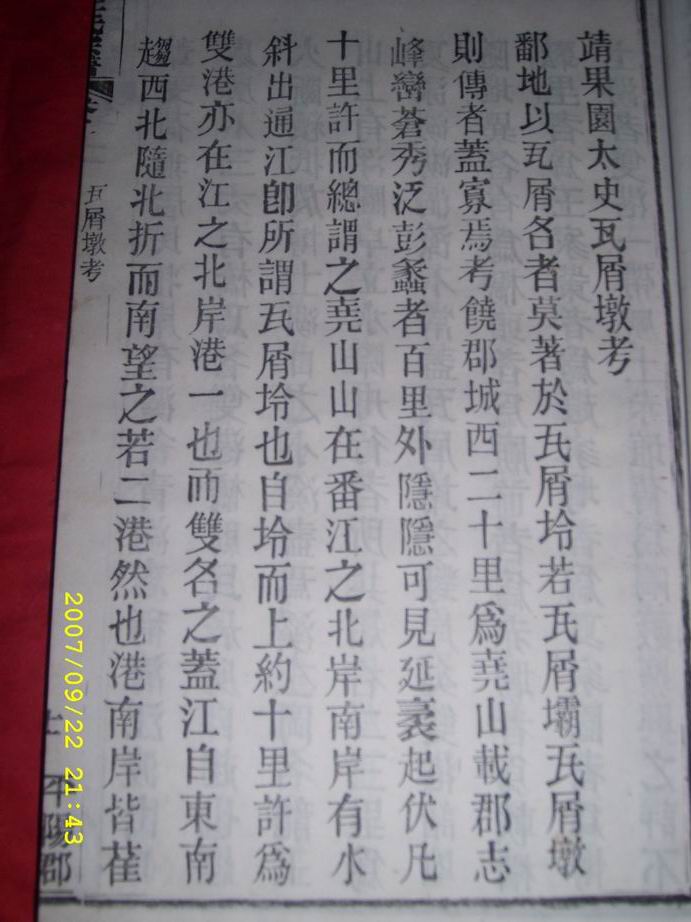 靖果園太史瓦屑墩考
鄱地以瓦屑名者莫著於瓦屑坽若瓦屑壩瓦屑墩
則傳者蓋寡焉考饒郡城西二十里爲堯山載郡志
峰巒蒼秀泛彭蠡者百里外隱隱可見延袤起伏凡
十里許而總謂之堯山山在番江之北岸南岸有水
斜出通江卽所謂瓦屑坽也自坽而上約十里許爲
雙港亦在江之北岸港一也而雙名之蓋江自東南
趨西北隨北折而南望之若二港然也港南岸皆萑
瓦屑墩考
平陽郡
2007/09/22 21:43